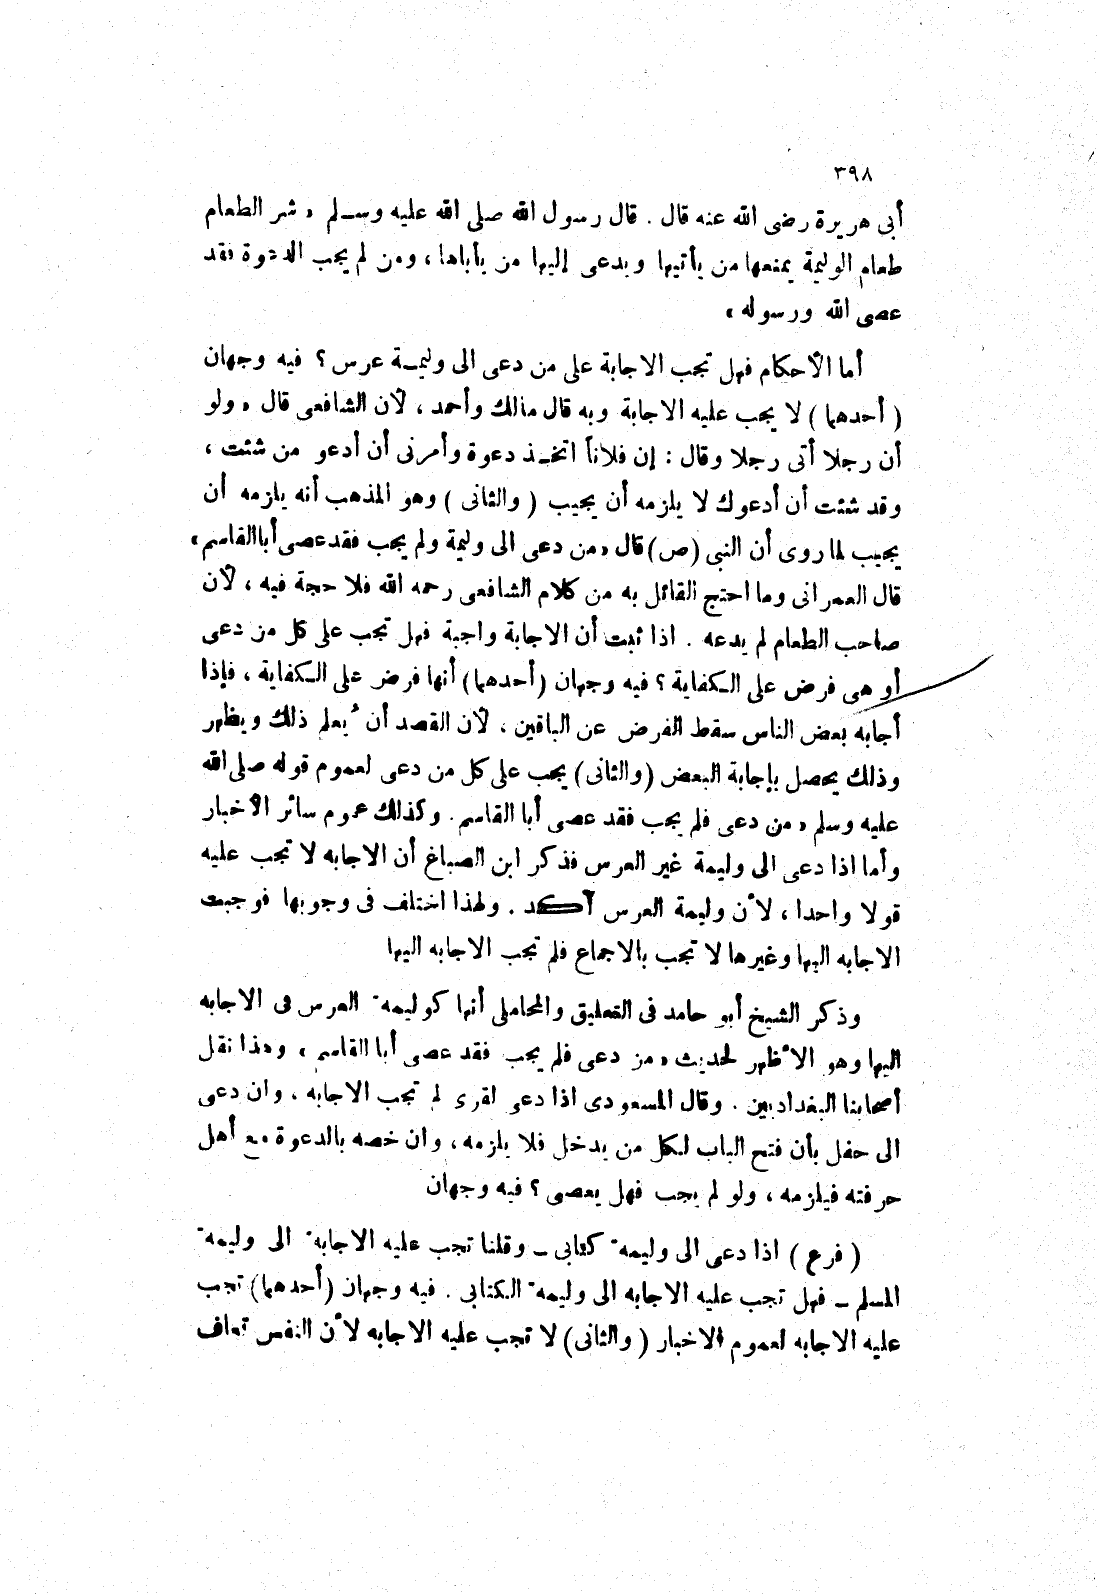 ٣٩٨
أبى هريرة رضى الله عنه قال . قال رسول الله صلى الله عليه وسـلم « شر الطعام
طعام الوليمة يمنعها من يأتيها ويدعى إليها من يأباها ، ومن لم يجب الدعوة فقد
عصى الله ورسوله »
أما الأحكام فهل تجب الاجابة على من دعى الى وليمـة عرس ؟ فيه وجهان
( أحدهما ) لا يجب عليه الاجابة وبه قال مالك وأحمد ، لأن الشافعى قال « ولو
أن رجلا أتى رجلا وقال : إن فلاناً اتخـذ دعوة وأمرنى أن أدعو من شئت ،
وقد شئت أن أدعوك لا يلزمه أن يجيب ( والثانى ) وهو المذهب أنه يلزمه أن
يجيب لما روى أن النبى (ص) قال « من دعى الى وليمة ولم يجب فقد عصى أبا القاسم »
قال العمرانى وما احتج القائل به من كلام الشافعى رحمه الله فلا حجة فيه ، لأن
صاحب الطعام لم يدعه . اذا ثبت أن الاجابة واجبة فهل تجب على كل من دعى
أو هى فرض على الكفاية ؟ فيه وجهان (أحدهما) أنها فرض على الكفاية ، فإذا
أجابه بعض الناس سقط الفرض عن الباقين ، لأن القصد أن ُيعلم ذلك ويظهر
وذلك يحصل بإجابة البعض (والثانى) يجب على كل من دعى لعموم قوله صلى الله
عليه وسلم « من دعى فلم يجب فقد عصى أبا القاسم . وكذلك عموم سائر الأخبار
وأما اذا دعى الى وليمة غير العرس فذكر ابن الصباغ أن الاجابه لا تجب عليه
قولا واحدا ، لأن وليمة العرس آكد . ولهذا اختلف فى وجوبها فوجبت
الاجابه اليها وغيرها لا تجب بالاجماع فلم تجب الاجابه اليها
وذكر الشيخ أبو حامد فى التعليق والمحاملى أنها كوليمه العرس فى الاجابه
اليها وهو الأظهر لحديث « من دعى فلم يجب فقد عصى أبا القاسم » وهذا نقل
أصحابنا البغداديين . وقال المسعودى اذا دعى لقرى لم تجب الاجابه ، وان دعى
الى حفل بأن فتح الباب لكل من يدخل فلا يلزمه ، وان خصه بالدعوة مع أهل
حرفته فيلزمه ، ولو لم يجب فهل يعصى ؟ فيه وجهان
( فرع ) اذا دعى الى وليمه كتابى ــ وقلنا تجب عليه الاجابه الى وليمه
المسلم ــ فهل تجب عليه الاجابه الى وليمه الكتابى . فيه وجهان (أحدهما) تجب
عليه الاجابه لعموم الاخبار ( والثانى) لا تجب عليه الاجابه لأن النفس تعاف